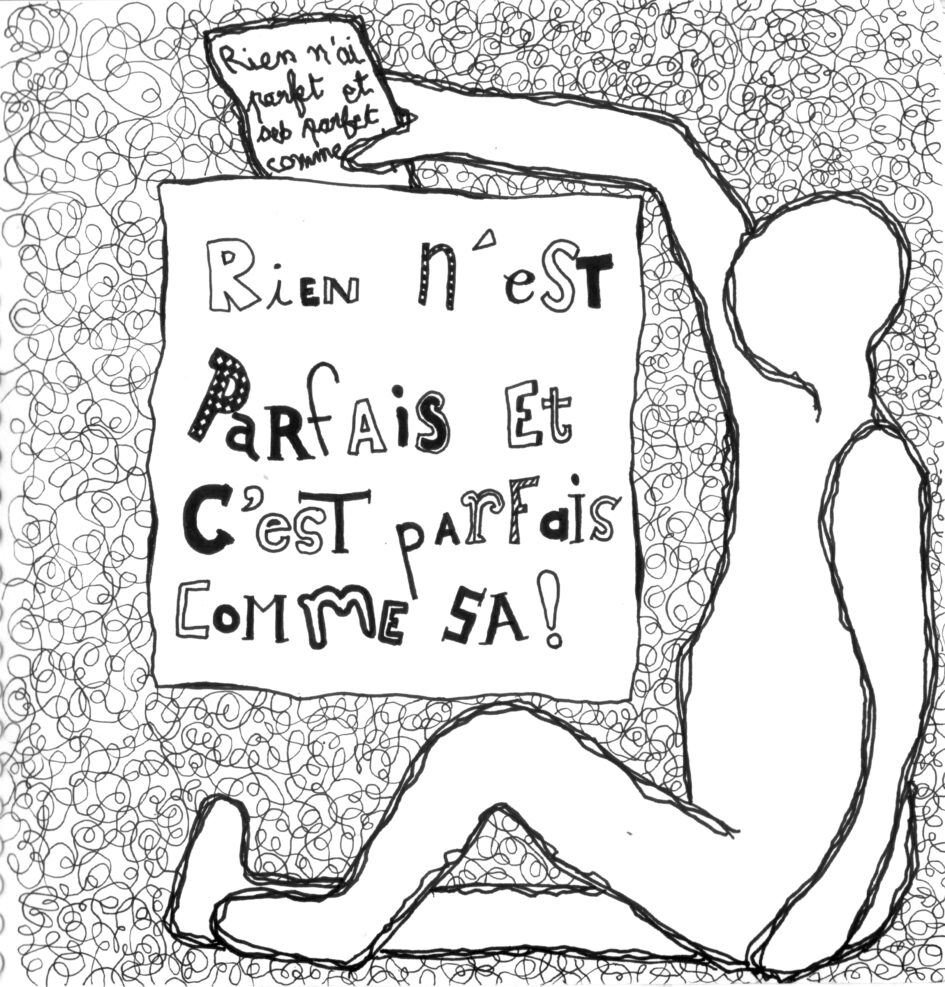 Rien n'ai
parfet et
seb parfet
comme
RiEN n'esT
PaRfAis Et
C'esT pArFais
COMMME SA!